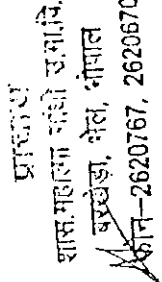 प्राचार्य
शास.महात्मा गाँधी उ.मा.वि.
बरखेड़ा, भेल, भोपाल
फोन–2620767, 2620670